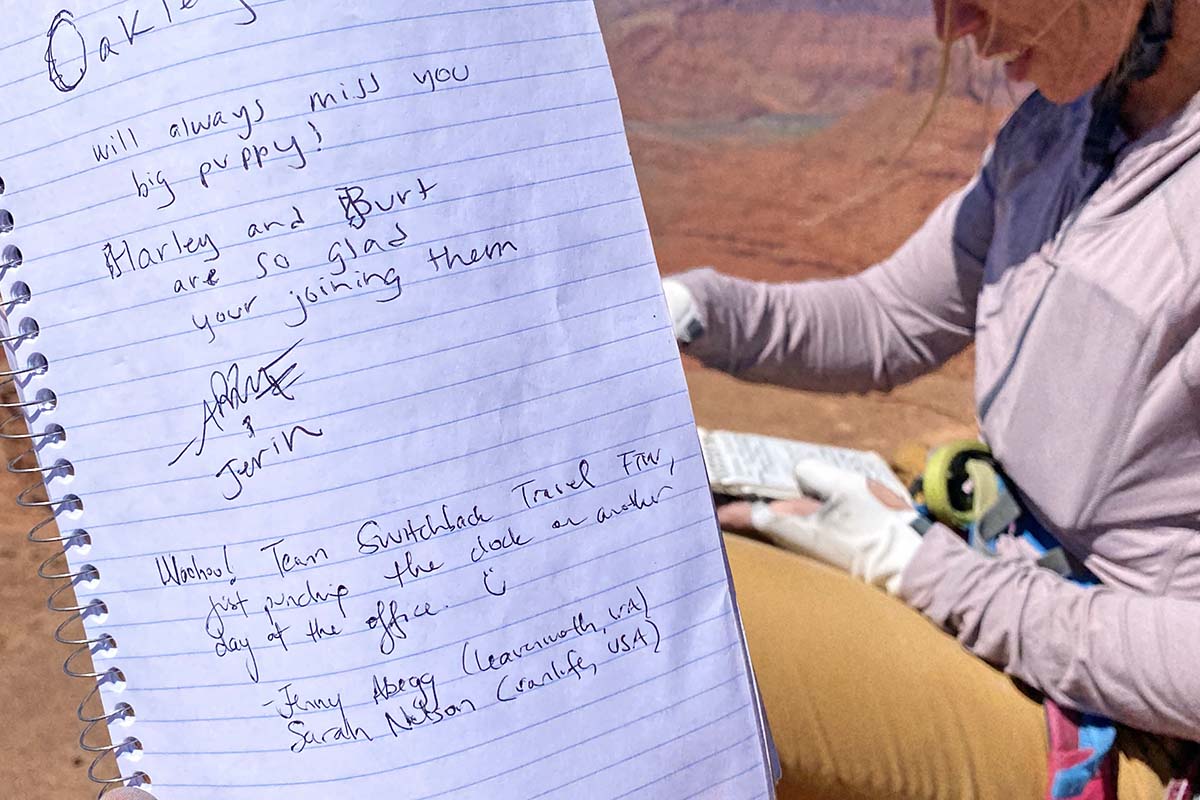 Oakley
will always miss you
big puppy!
Harley and Burt
are so glad
your joining them
&
Jerin
Woohoo! Team Switchback Travel FTW,
just punching the clock on another
day at the office. :)
-Jenny Abegg (Leavenworth, WA)
Sarah Nelson (vanlife, USA)